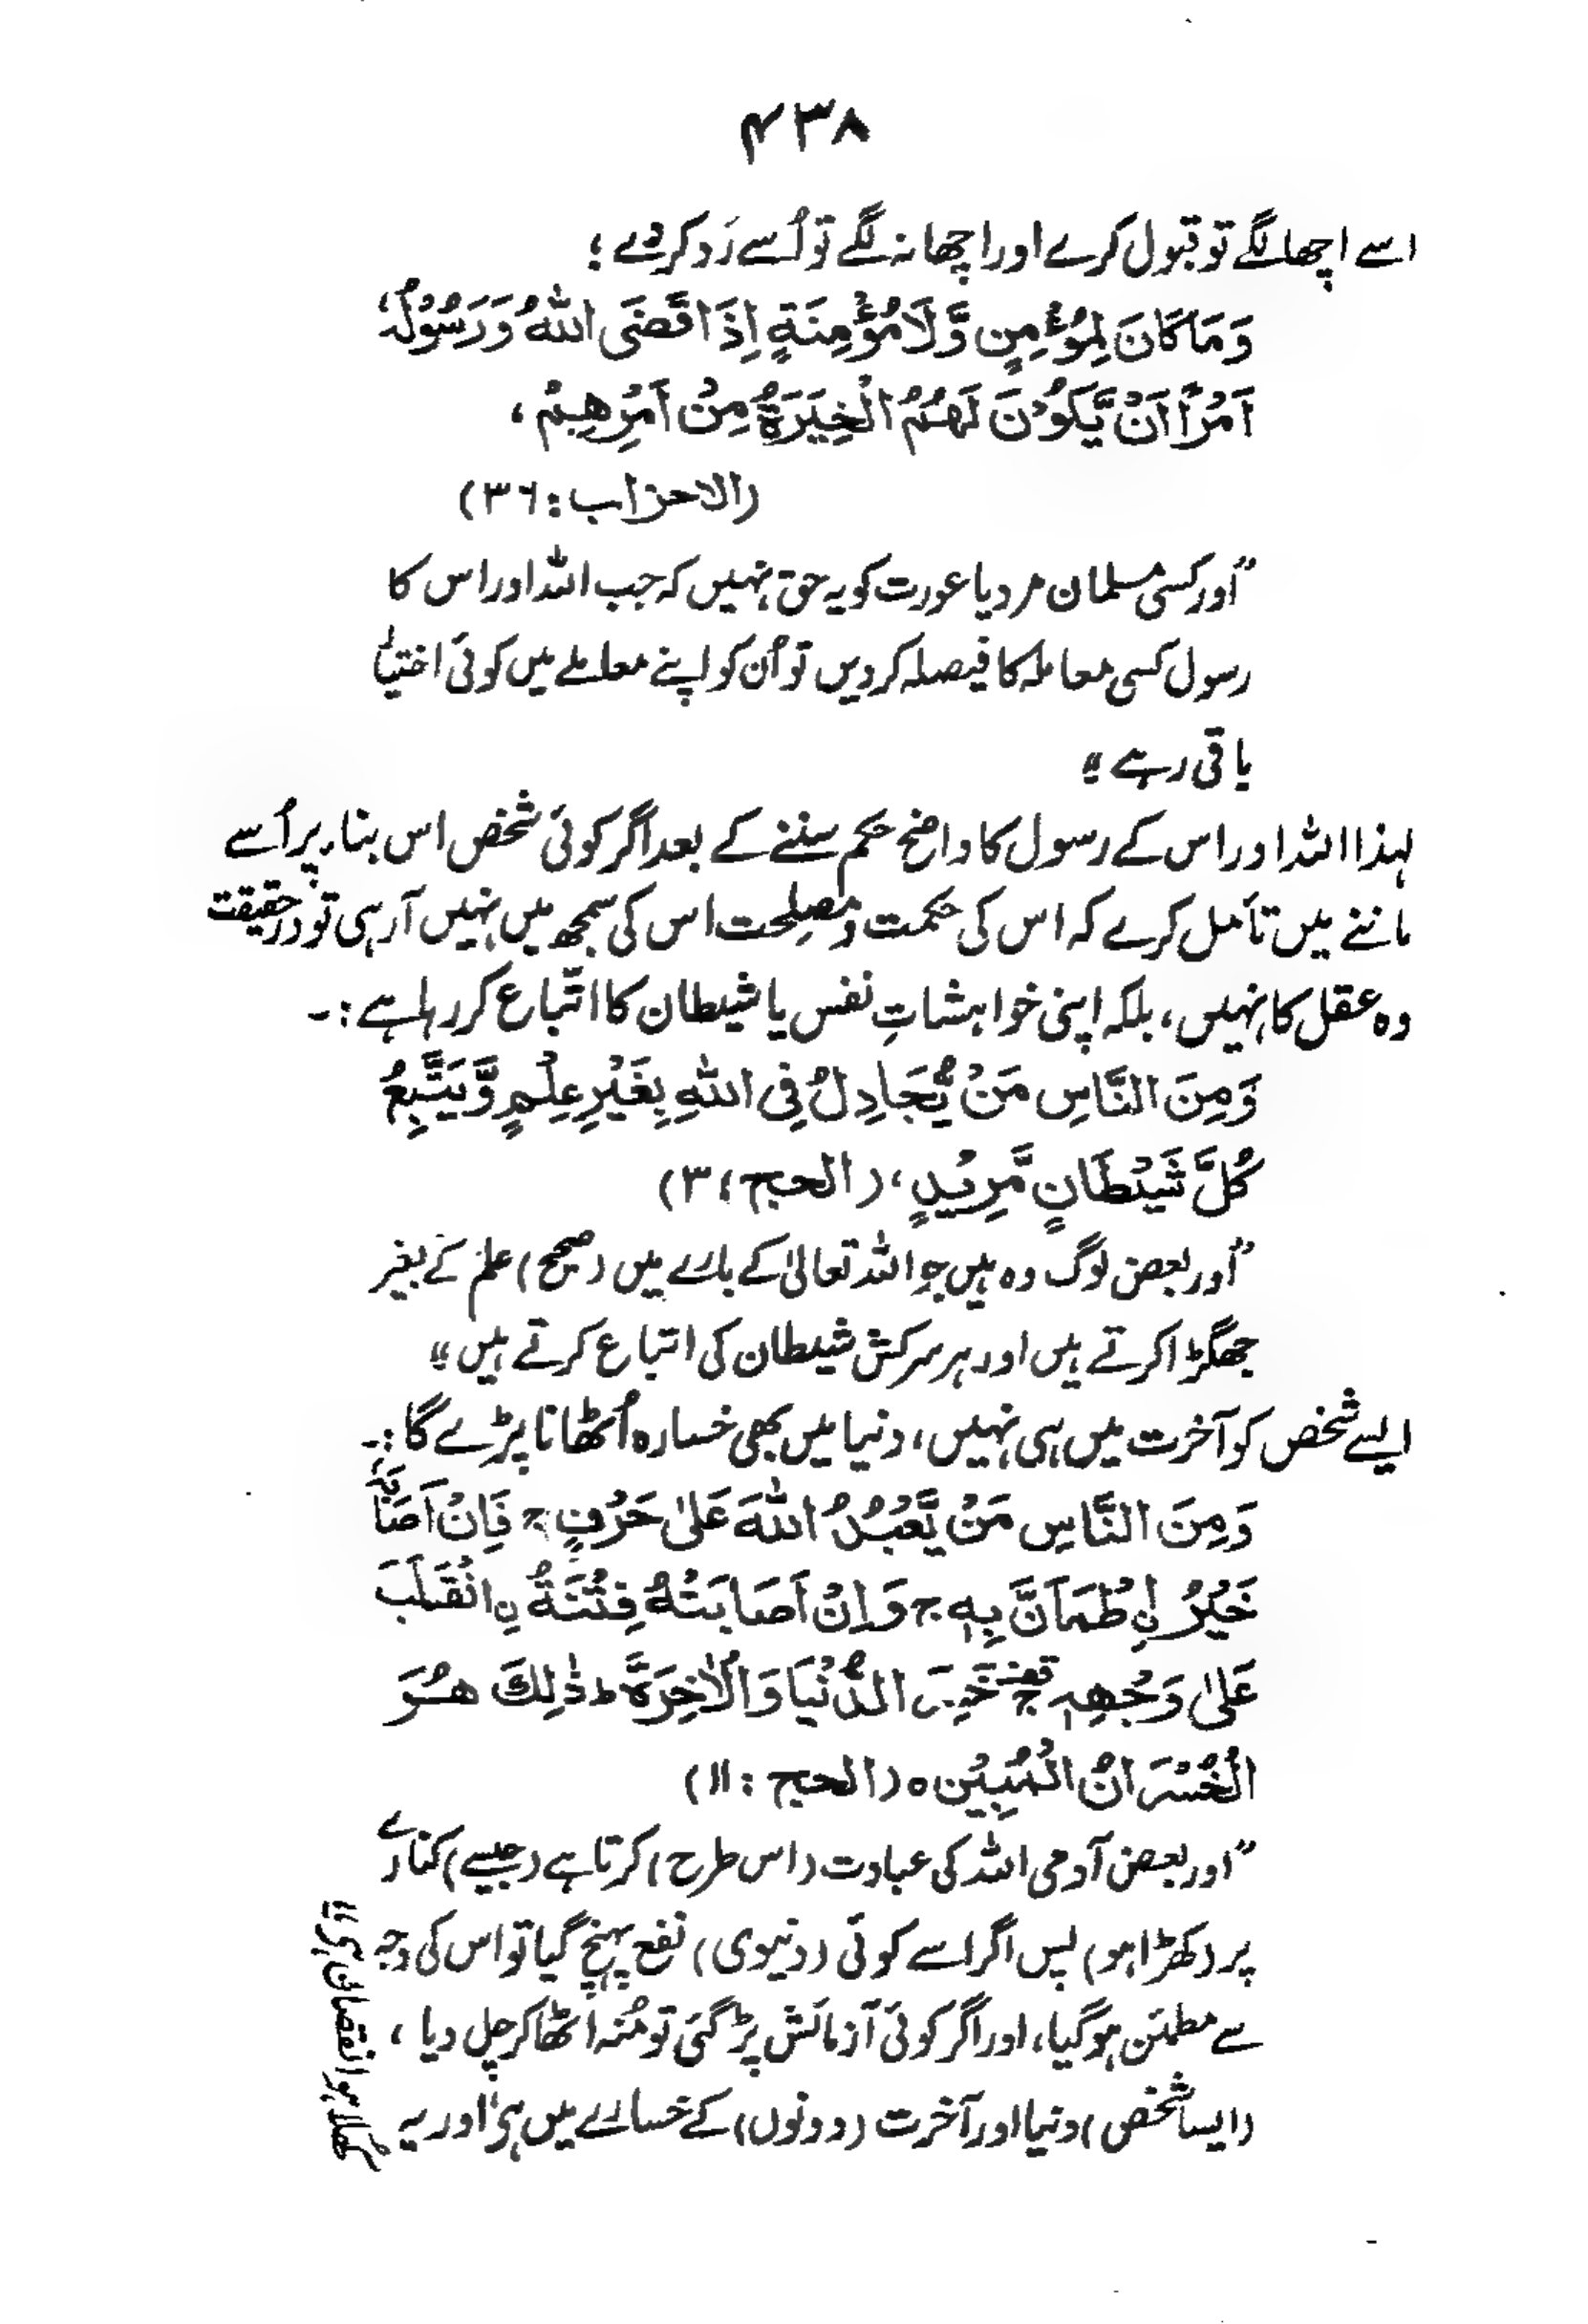 ۴۳۸
اسے اچھا لگے تو قبول کرے اور اچھا نہ لگے تو اُسے رَد کر دے ؛
وَمَا كَانَ لِمُؤْمِنٍ وَّلَا مُؤْمِنَةٍ اِذَا قَضَى اللّٰهُ وَرَسُوْلُهٗ
اَمْرًا اَنْ يَّكُوْنَ لَهُمُ الْخِيَرَةُ مِنْ اَمْرِهِمْ ،
(الاحزاب : ٣٦)
"اور کسی مسلمان مرد یا عورت کو یہ حق نہیں کہ جب اللہ اور اس کا
رسول کسی معاملہ کا فیصلہ کر دیں تو اُن کو اپنے معاملے میں کوئی اختیار
باقی رہے"
لہٰذا اللہ اور اس کے رسول کا واضح حکم سننے کے بعد اگر کوئی شخص اس بناء پر اُسے
ماننے میں تأمل کرے کہ اس کی حکمت و مصلحت اس کی سمجھ میں نہیں آرہی تو درحقیقت
وہ عقل کا نہیں، بلکہ اپنی خواہشاتِ نفس یا شیطان کا اتّباع کر رہا ہے :-
وَمِنَ النَّاسِ مَنْ يُّجَادِلُ فِى اللّٰهِ بِغَيْرِ عِلْمٍ وَّيَتَّبِعُ
كُلَّ شَيْطَانٍ مَّرِيْدٍ ، (الحج : ٣)
"اور بعض لوگ وہ ہیں جو اللہ تعالیٰ کے بارے میں (صحیح) علم کے بغیر
جھگڑا کرتے ہیں اور ہر سرکش شیطان کی اتباع کرتے ہیں"
ایسے شخص کو آخرت میں ہی نہیں، دنیا میں بھی خسارہ اُٹھانا پڑے گا :-
وَمِنَ النَّاسِ مَنْ يَّعْبُدُ اللّٰهَ عَلٰى حَرْفٍ ج فَاِنْ اَصَابَهٗ
خَيْرُ ِۨ اطْمَاَنَّ بِهٖ ج وَاِنْ اَصَابَتْهُ فِتْنَةُ ِۨ انْقَلَبَ
عَلٰى وَجْهِهٖ قف ج خَسِرَ الدُّنْيَا وَالْاٰخِرَةَ ط ذٰلِكَ هُوَ
الْخُسْرَانُ الْمُبِيْنُ ہ (الحج : ١١)
"اور بعض آدمی اللہ کی عبادت (اس طرح) کرتا ہے (جیسے) کنارے
پر (کھڑا ہو) پس اگر اسے کوئی (دنیوی) نفع پہنچ گیا تو اس کی وجہ
سے مطمئن ہوگیا، اور اگر کوئی آزمائش پڑ گئی تو مُنہ اٹھا کر چل دیا ،
(ایسا شخص) دنیا اور آخرت (دونوں) کے خسارے میں ہی اور یہ
کھلا ہوا نقصان ہی"